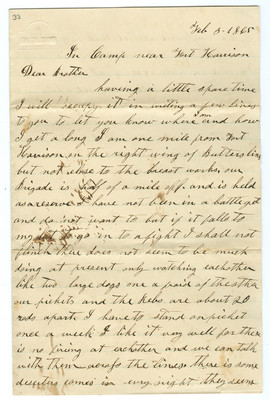 32
Feb 5-1865
In Camp near Fort Harrison
Dear Brother
having a little spare time
I will occupy it in writing a few lines
to you to let you know where I am and how
I get a long I am one mile from Fort
Harrison on the right wing of Butlers line
but not close to the breast works, our
Brigade is half of a mile off and is held
as a reserve I have not been in a battle yet
and do not want to but if it falls to
my lot to go into a fight I shall not
flinch there does not seem to be much
doing at present only watching eachother
like two large dogs one a fraid of the other
our pickits and the Rebs are about 20
rods apart I have to stand on picket
once a week I like it very well for there
is no firing at eachother and we can talk
with them across the lines there is some
deserters comes in every night they seem